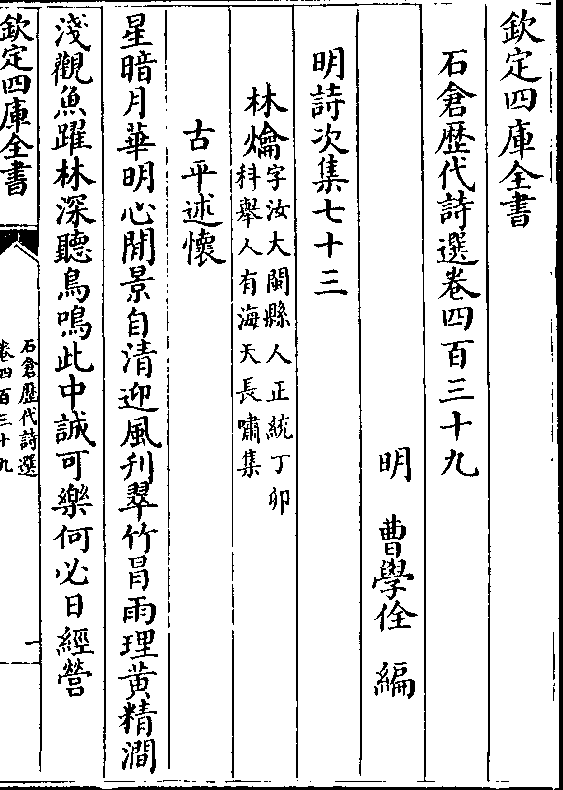 欽定四庫全書
石倉歷代詩選卷四百三十九
明 曹學佺 編
明詩次集七十三
林爚字汝大閩縣人正統丁卯
科舉人有海天長嘯集
古平述懷
星暗月華明心閒景自清迎風刋翠竹冒雨理黄精澗
淺觀魚躍林深聽鳥鳴此中誠可樂何必日經營
欽定四庫全書
石倉歷代詩選
卷四百三十九
一